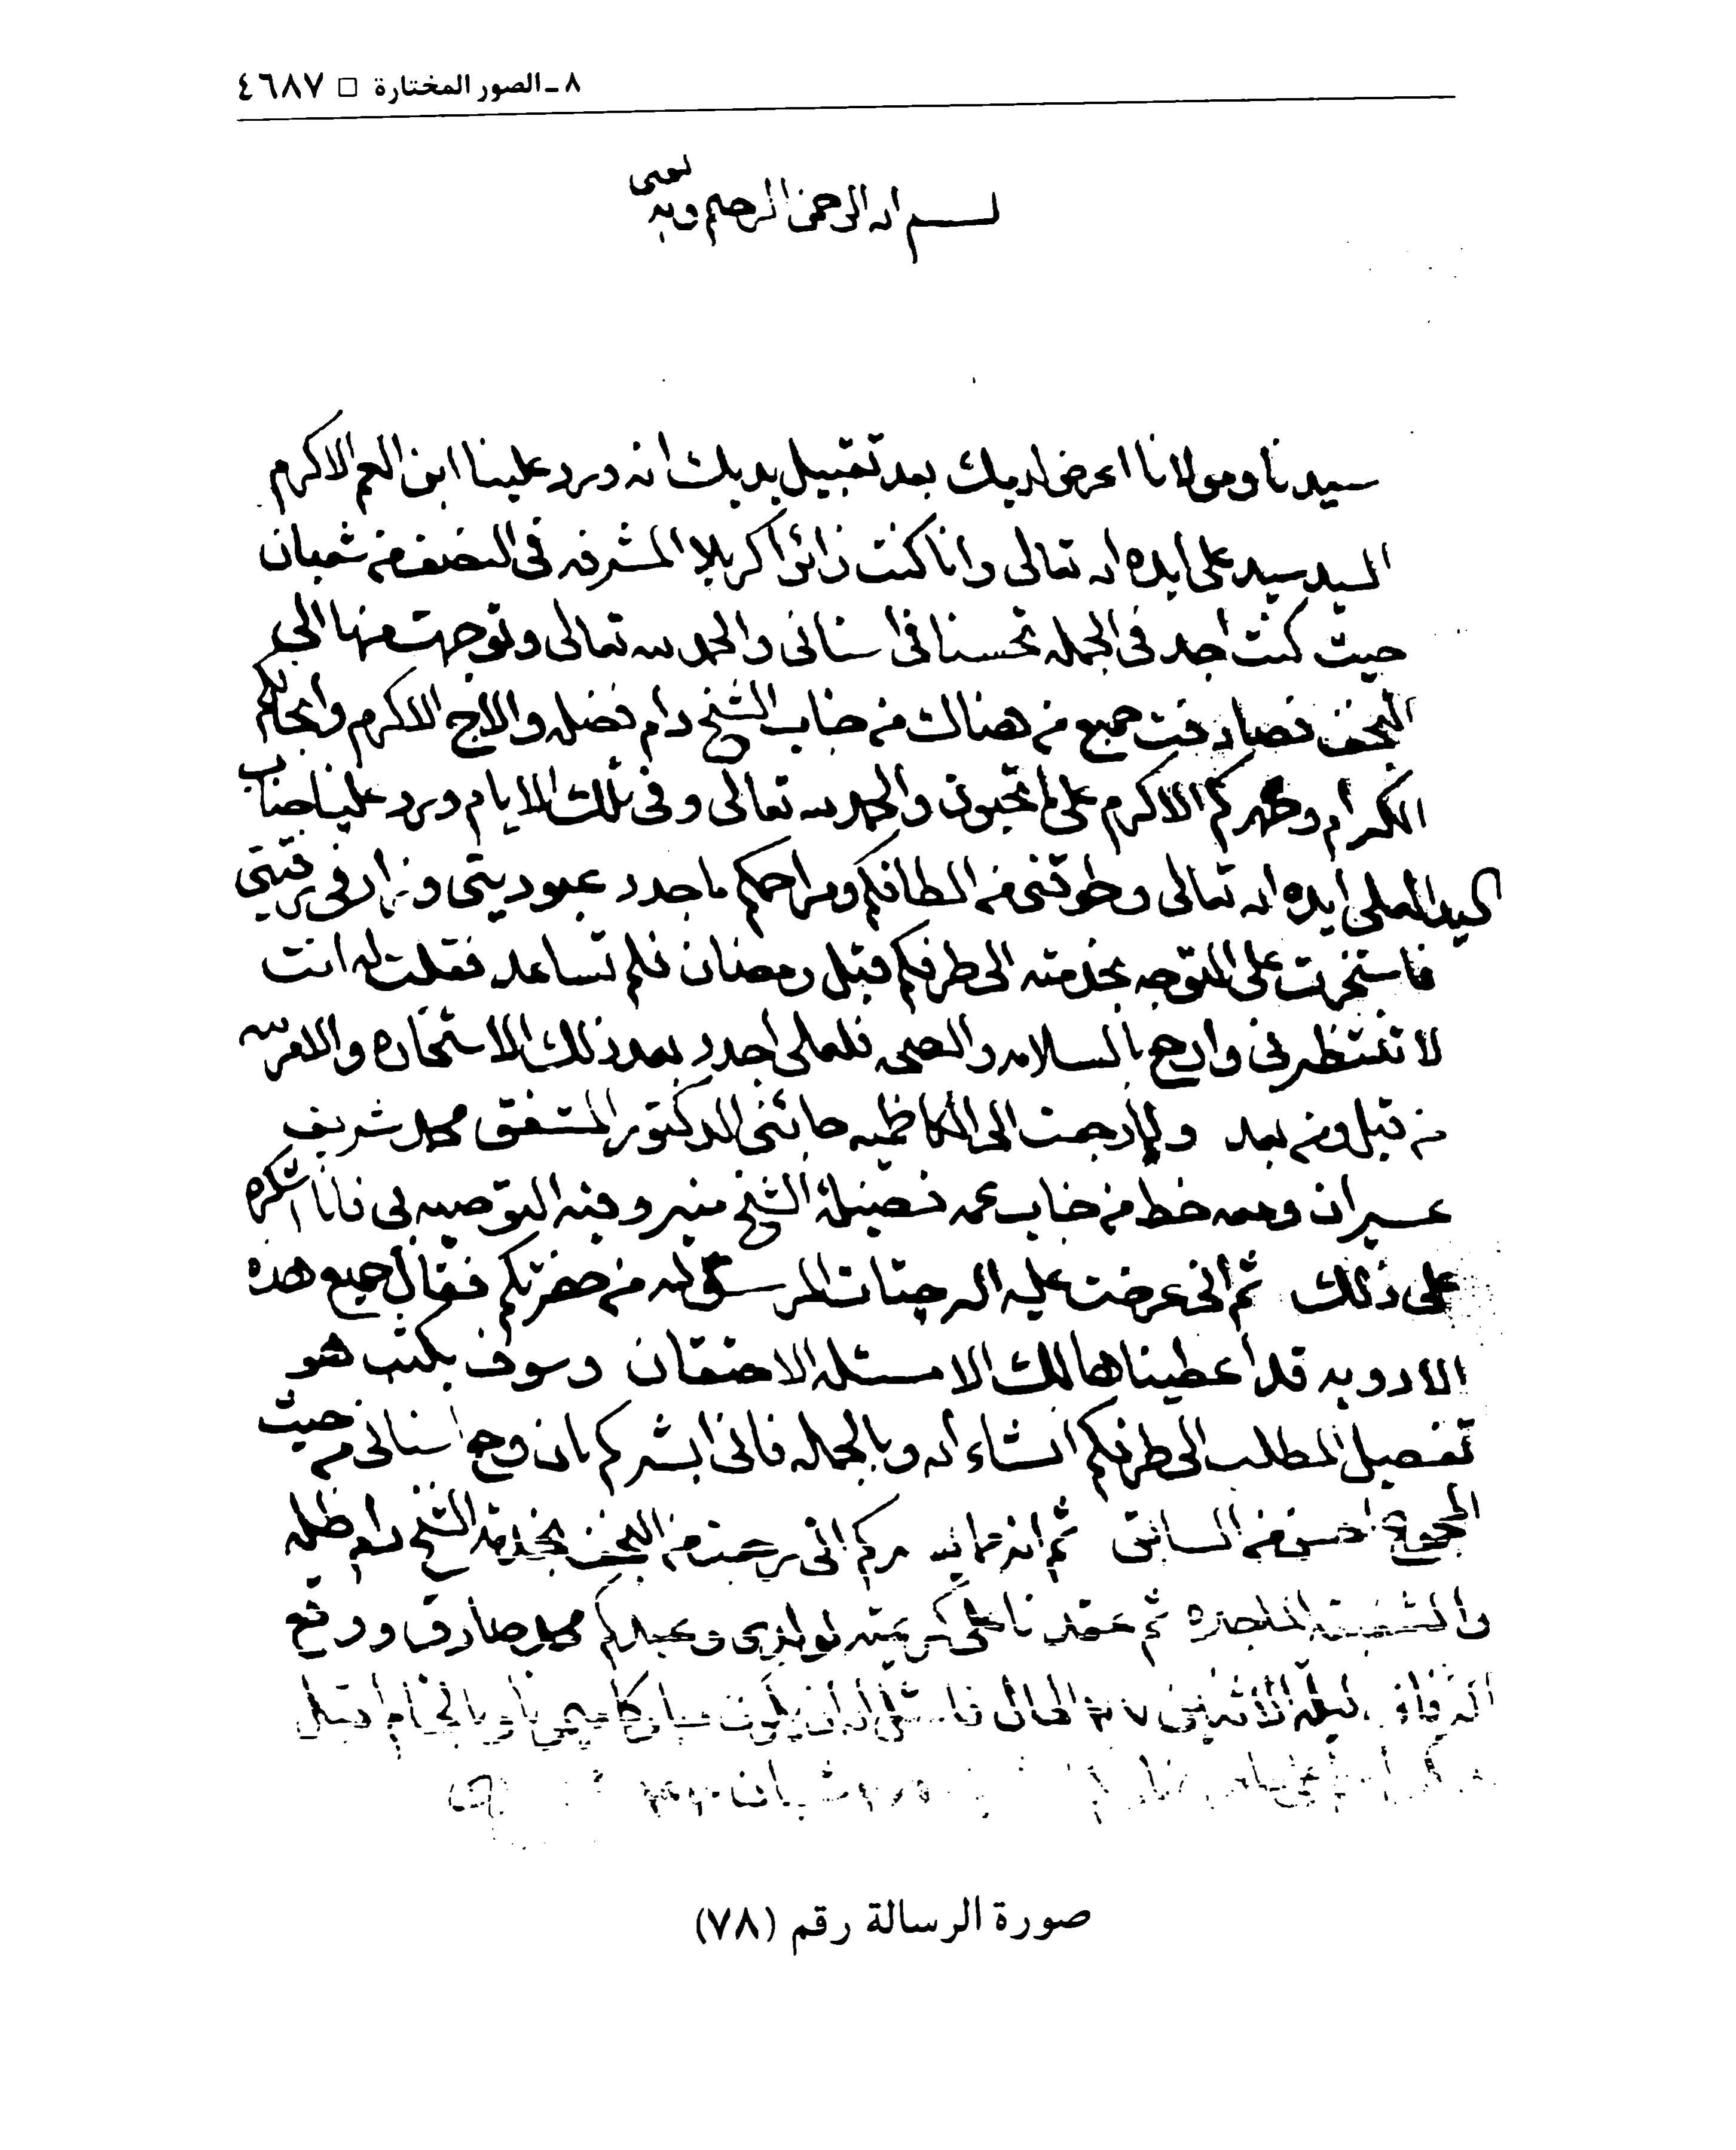 ٨ ـ الصور المختارة □ ٤٦٨٧
بسم الله الرحمن الرحيم وبه نستعين
سيدنا ومولانا اعرض لديك بعد تقبيل يديك انه ورد علينا ابن العم الاكرم
السيد سيد علي ايده الله تعالى وانا كنت زائرا كربلا المشرفه في النصف من شعبان
حيث كنت اجد في الجمله تحسنا في اسناني والحمد لله تعالى وتوجهت منها الى
النجف فصادفت جميع من هناك من جناب الشيخ دام فضله والاخ الاكرم وانجالكم
الكرام وصهركم الاكرم على ما تحبون والحمد لله تعالى وفي تلك الايام ورد علينا جناب
السيد العلي ايده الله تعالى وطوقني من الطافكم ومراحمكم ما جدد عبوديتي وزاد في رقيتي
فاستخرت على التوجه بخدمته الى طرفكم قبل رمضان فلم تساعد فقلت له انت
لا تنتظرني وارجع بالسلامه والصحه فلعلي اجدد بعد ذلك الاستخاره والامر لله
من قبل ومن بعد ولما رجعت الى الكاظميه جائني الدكتور المشفق محمد شريف
عسيران ومعه خط من جناب عمه فضيلة الشيخ منير وفيه التوصيه بي فانا اشكره
على ذلك ثم اني عرضت عليه الرجتات المرسله من حضرتكم فقال جميع هذه
الادويه قد اعطيناها لك الا مسئله الاحتقان وسوف يكتب هو
تفصيل المطلب الى طرفكم انشاء الله وبالجمله فاني ابشركم بان وجع اسناني من حيث
المجموع احسن من السابق ثم انه اني رجعت من النجف بخدمة الشيخ دام ظله
ثم عقدنا على كريمته لولدي وعبدكم محمد صادق ووقع
الزفاف ليلة الاثنين ٢٧ الحالي
شعبان
صورة الرسالة رقم (٧٨)